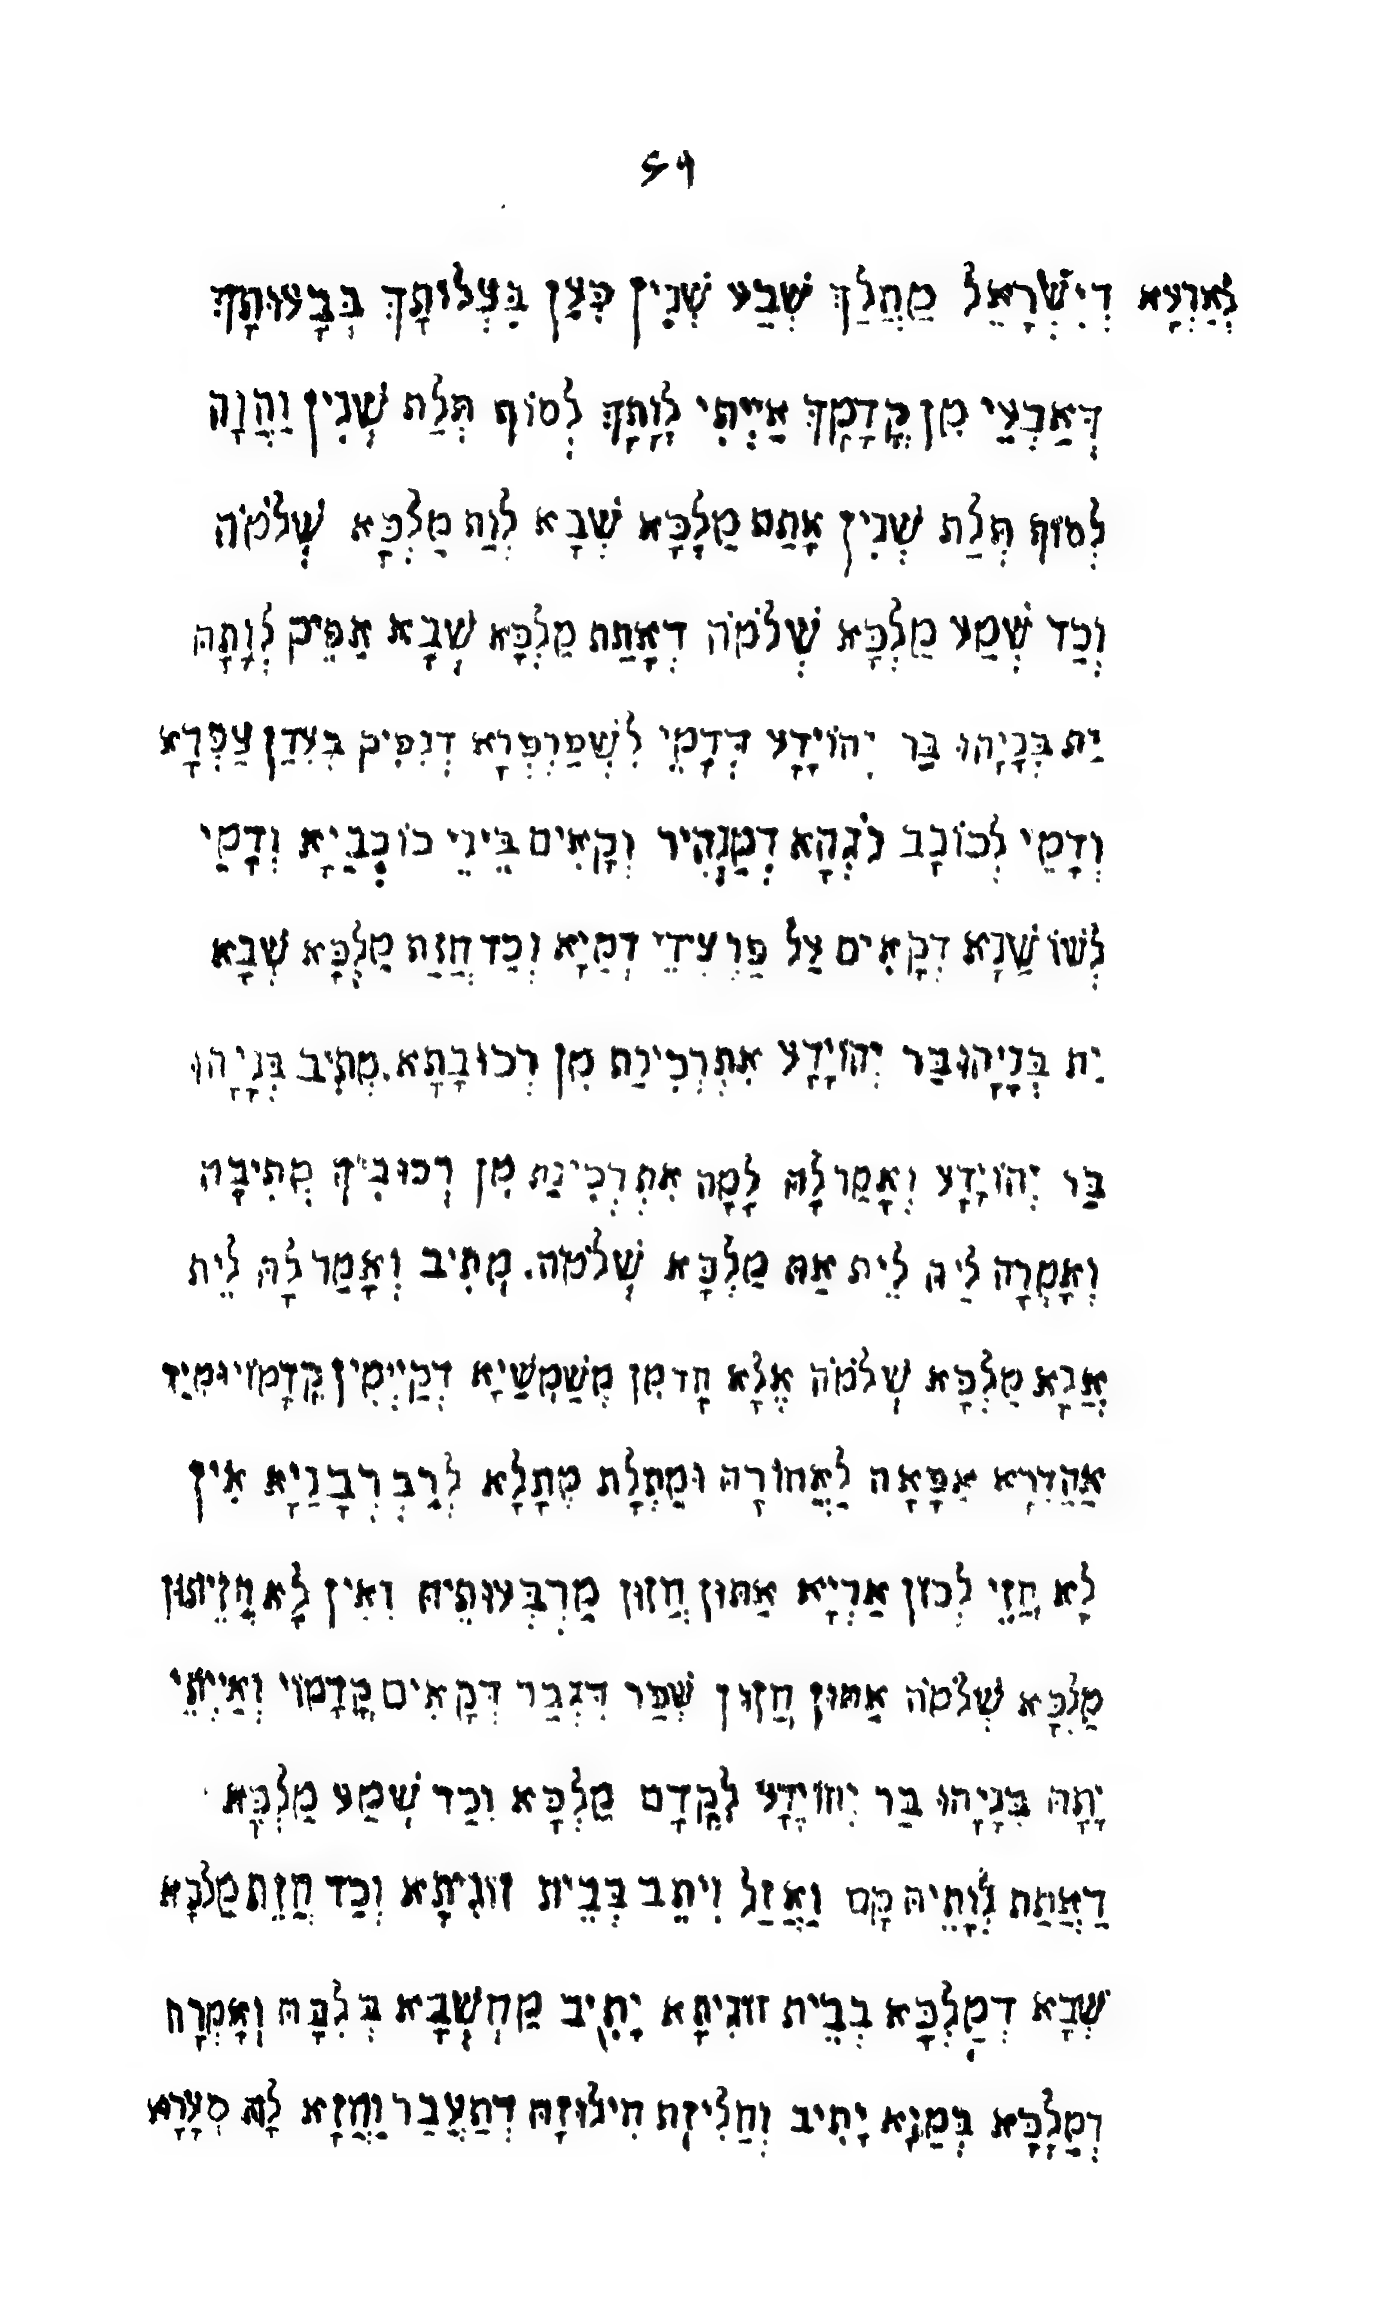 לְאַרְעָא דְיִשְׂרָאֵל מַהֲלַךְ שְׁבַע שְׁנִין כְּעַן בִּצְלוֹתָךְ בְּבָעוּתָךְ
דְּאֶבְעֵי מִן קֳדָמָךְ אַיְתִי לְוָתָךְ לְסוֹף תְּלַת שְׁנִין וַהֲוָה
לְסוֹף תְּלַת שְׁנִין אָתַת מַלְכָּא שְׁבָא לְוַת מַלְכָּא שְׁלֹמֹה
וְכַד שְׁמַע מַלְכָּא שְׁלֹמֹה דְאָתַת מַלְכָּא שְׁבָא אַפֵּיק לְוָתָהּ
יַת בְּנָיָהוּ בַּר יְהוֹיָדָע דְּדָמֵי לִשְׁפַרְפְּרָא דְנִפִּיק בְּעִדַּן צַפְרָא
וְדָמֵי לְכוֹכַב נֹגְהָא דְמַנְהִיר וְקָאִים בֵּינֵי כוֹכְבַיָא וְדָמֵי
לְשׁוֹשַׁנָא דְקָאִים עַל פַרְצִידֵי דְמַיָא וְכַד חֲזַת מַלְכָּא שְׁבָא
יַת בְּנָיָהוּ בַּר יְהוֹיָדָע אִתְרְכִינַת מִן רְכוּבָתָא. מְתִיב בְּנָיָהוּ
בַּר יְהוֹיָדָע וְאָמַר לָהּ לָמָה אִתְרְכִינַת מִן רְכוּבִיךְ מְתִיבָה
וְאָמְרָה לֵיהּ לֵית אַתּ מַלְכָּא שְׁלֹמֹה. מְתִיב וְאָמַר לָהּ לֵית
אֲנָא מַלְכָּא שְׁלֹמֹה אֶלָּא חַד מִן מְשַׁמְשַׁיָא דְקַיְימִין קֳדָמוֹי וּמִיַד
אַהֲדִרְא אַפָּאָה לַאֲחוֹרָהּ וּמַתְלָת מְתָלָא לְרַבְרְבָנַיָא אִין
לָא חֲזֵי לְכוֹן אַרְיָא אַתּוּן חֲזוּן מַרְבְּעוּתֵיהּ וְאִין לָא חֲזֵיתוּן
מַלְכָּא שְׁלֹמֹה אַתּוּן חֲזוּן שְׁפַר דִּגְבַר דְּקָאִים קֳדָמוֹי וְאַיְתֵי
יָתָהּ בְּנָיָהוּ בַר יְהוֹיָדָע לְקֳדָם מַלְכָּא וְכַד שְׁמַע מַלְכָּא
דַאֲתַת לְוָתֵיהּ קָם וַאֲזַל וִיתֵב בְּבֵית זוּגִיתָא וְכַד חֲזַת מַלְכָּא
שְׁבָא דְמַלְכָּא בְּבֵית זוּגִיתָא יָתִיב מַחְשְׁבָא בְּלִבָּהּ וְאָמְרָה
דְמַלְכָּא בְּמַיָא יָתִיב וְחַלִּיזַת חִילוּזָהּ דְתַעֲבַר וַחֲזָא לָהּ סְעָרָא